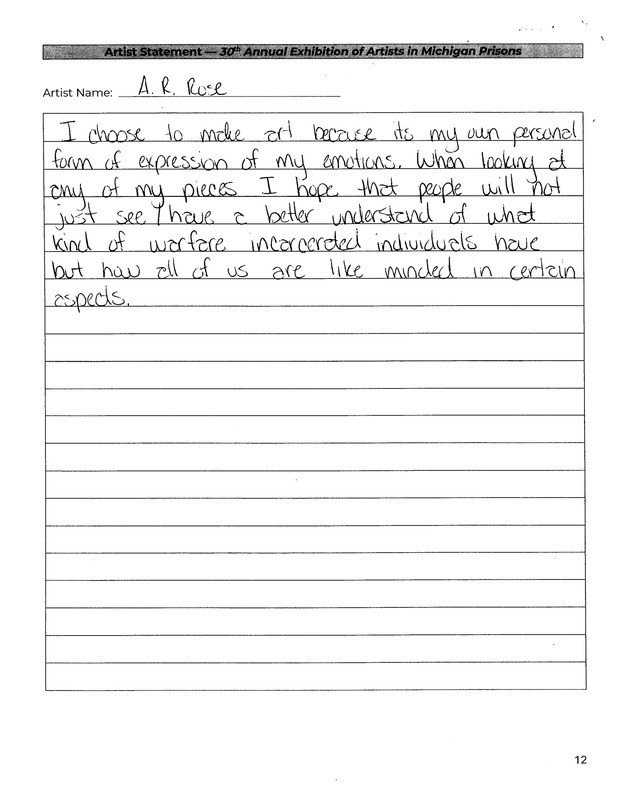 Artist Statement — 30th Annual Exhibition of Artists in Michigan Prisons
Artist Name: A. R. Rose
I choose to make art because its my own personal
form of expression of my emotions. When looking at
any of my pieces I hope that people will not
just see / have a better understand of what
kind of warfare incarcerated individuals have
but how all of us are like minded in certain
aspects.
12